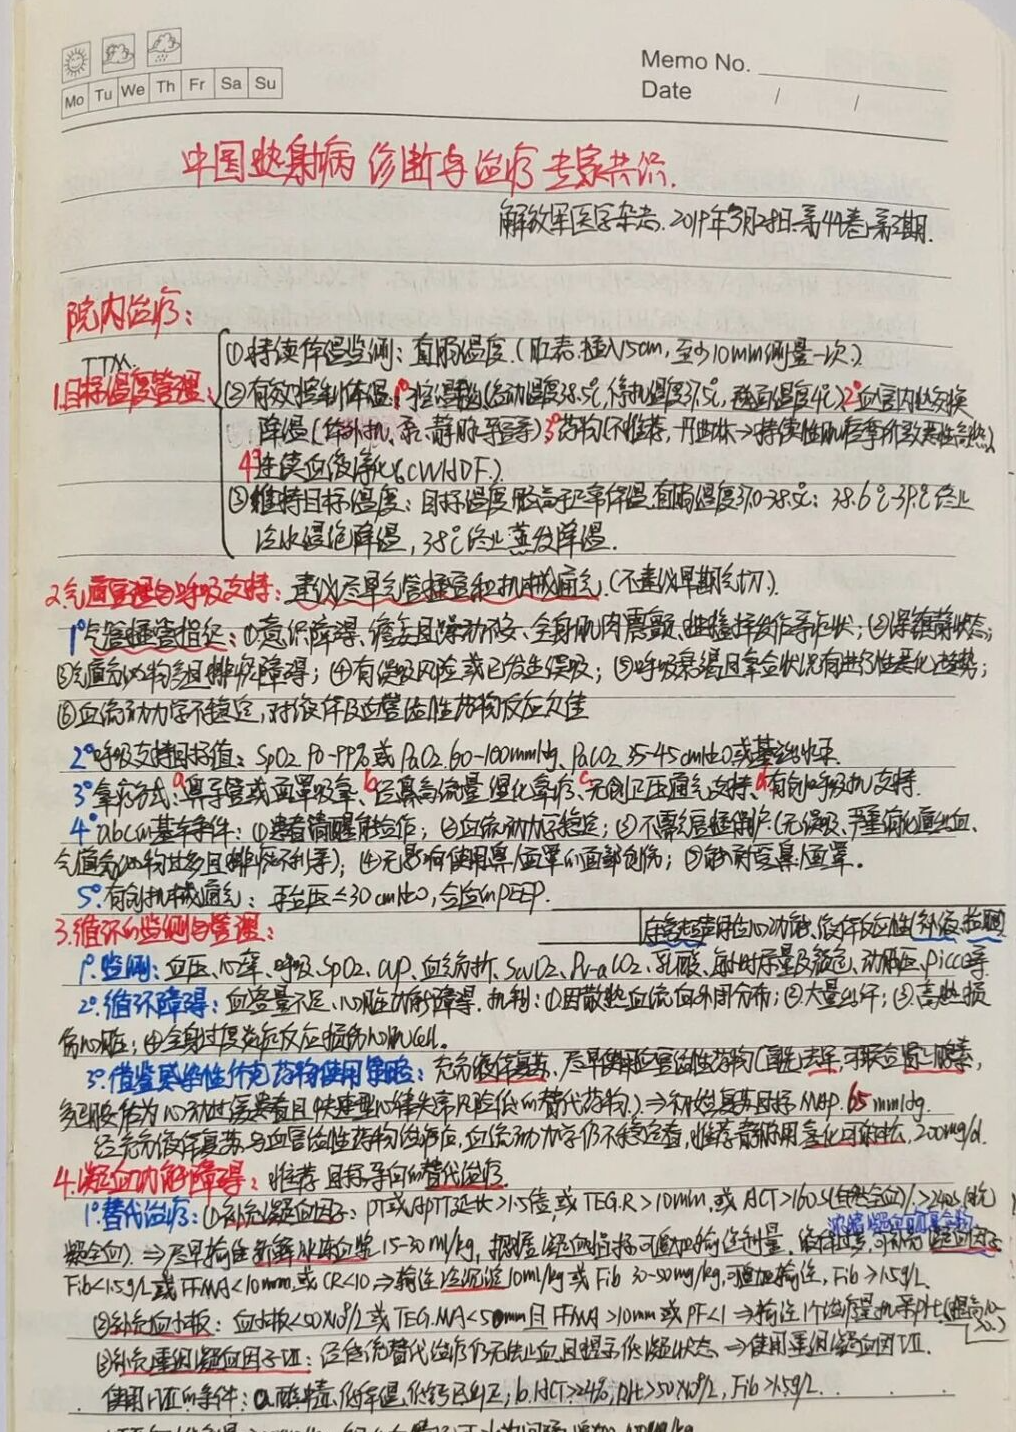 Mo Tu We Th Fr Sa Su
Memo No.
Date / /
中国热射病诊断与治疗专家共识.
解放军医学杂志. 2019年3月28日 第44卷 第3期.
院内治疗:
TTM.
1.目标温度管理:
①持续体温监测: 直肠温度.(肛表.插入15cm, 至少10mm测量一次.)
②有效控制体温 1°控温毯(启动温度38.5℃, 待机温度37.5℃, 毯面温度4℃) 2°血管内热交换
降温(体外机、泵、静脉导管等) 3°药物(不推荐, 丹曲林→持续性肌痉挛松弛恶性高热)
4°连续血液净化(CVVHDF.)
③维持目标温度: 目标温度略高于正常体温,直肠温度37.0-38.5℃: 38.6℃-39℃终止
冷水浸泡降温, 38℃终止蒸发降温.
2.气道管理与呼吸支持: 建议尽早气管插管和机械通气.(不建议早期气切.)
1°气管插管指征: ①意识障碍、谵妄且躁动不安、全身肌肉震颤、抽搐样发作等症状; ②深镇静状态;
③气道分泌物多且排痰障碍; ④有误吸风险或已发生误吸; ⑤呼吸衰竭且氧合状况有进行性恶化趋势;
⑥血流动力学不稳定, 对液体及血管活性药物反应欠佳
2°呼吸支持目标值: SpO2 90-99%或PaO2 60-100mmHg, PaCO2 35-45cmH2O或基础水平.
3°氧疗方式: a鼻导管或面罩吸氧、b经鼻高流量湿化氧疗、c无创正压通气支持、d有创呼吸机支持.
4°abc的基本条件: ①患者清醒能合作; ②血流动力学稳定; ③不需气管插管保护(无误吸、严重消化道出血、
气道分泌物过多且排痰不利等); ④无影响使用鼻/面罩的面部创伤; ⑤能耐受鼻/面罩.
5°有创机械通气: 平台压≤30cmH2O, 合适的PEEP.
3.循环的监测与管理:
床旁超声用估心功能、液体反应性(补液、
1°监测: 血压、心率、呼吸、SpO2、CVP、血气分析、ScvO2、Pv-aCO2、乳酸、每时尿量及颜色、动脉压、picco等
2°循环障碍: 血容量不足、心脏功能障碍. 机制: ①因散热血流向外周分布; ②大量出汗; ③高热损
伤心脏; ④全身过度炎症反应损伤心肌cell.
3°借鉴感染性休克药物使用策略: 充分液体复苏、尽早使用血管活性药物(首先去甲, 可联合肾上腺素,
多巴胺作为心动过缓患者且快速型心律失常风险低的替代药物.)⇒初始复苏目标 MAP 65mmHg.
经充分液体复苏与血管活性药物治疗后, 血流动力学仍不稳定者, 推荐静脉用氢化可的松, 200mg/d.
4.凝血功能障碍: 推荐目标导向的替代治疗.
1°替代治疗: ①补充凝血因子: PT或APTT延长>1.5倍, 或 TEG.R>10mm, 或 ACT>160s(自然全血)/>240s(抗
凝全血) ⇒尽早输注新鲜冰冻血浆15-30ml/kg, 根据凝血指标可追加输注剂量. 液体过多,可补充凝血因子
浓缩/凝血酶原复合物
Fib<1.5g/L或FFMA<10mm, 或CR<10⇒输注冷沉淀10ml/kg或Fib 30-50mg/kg, 可追加输注, Fib>1.5g/L.
②补充血小板: 血小板<50×10⁹/L或TEG.MA<50mm且FFMA>10mm或PF<1⇒输注1个治疗量机采plt(提高10-
③补充重组凝血因子Ⅶ: 经传统替代治疗仍无法止血,且提示低凝状态⇒使用重组凝血因子Ⅶ.
使用FⅦ的条件: a.酸中毒、低体温、低钙已纠正; b.HCT>24%, plt>50×10⁹/L, Fib>1.5g/L.